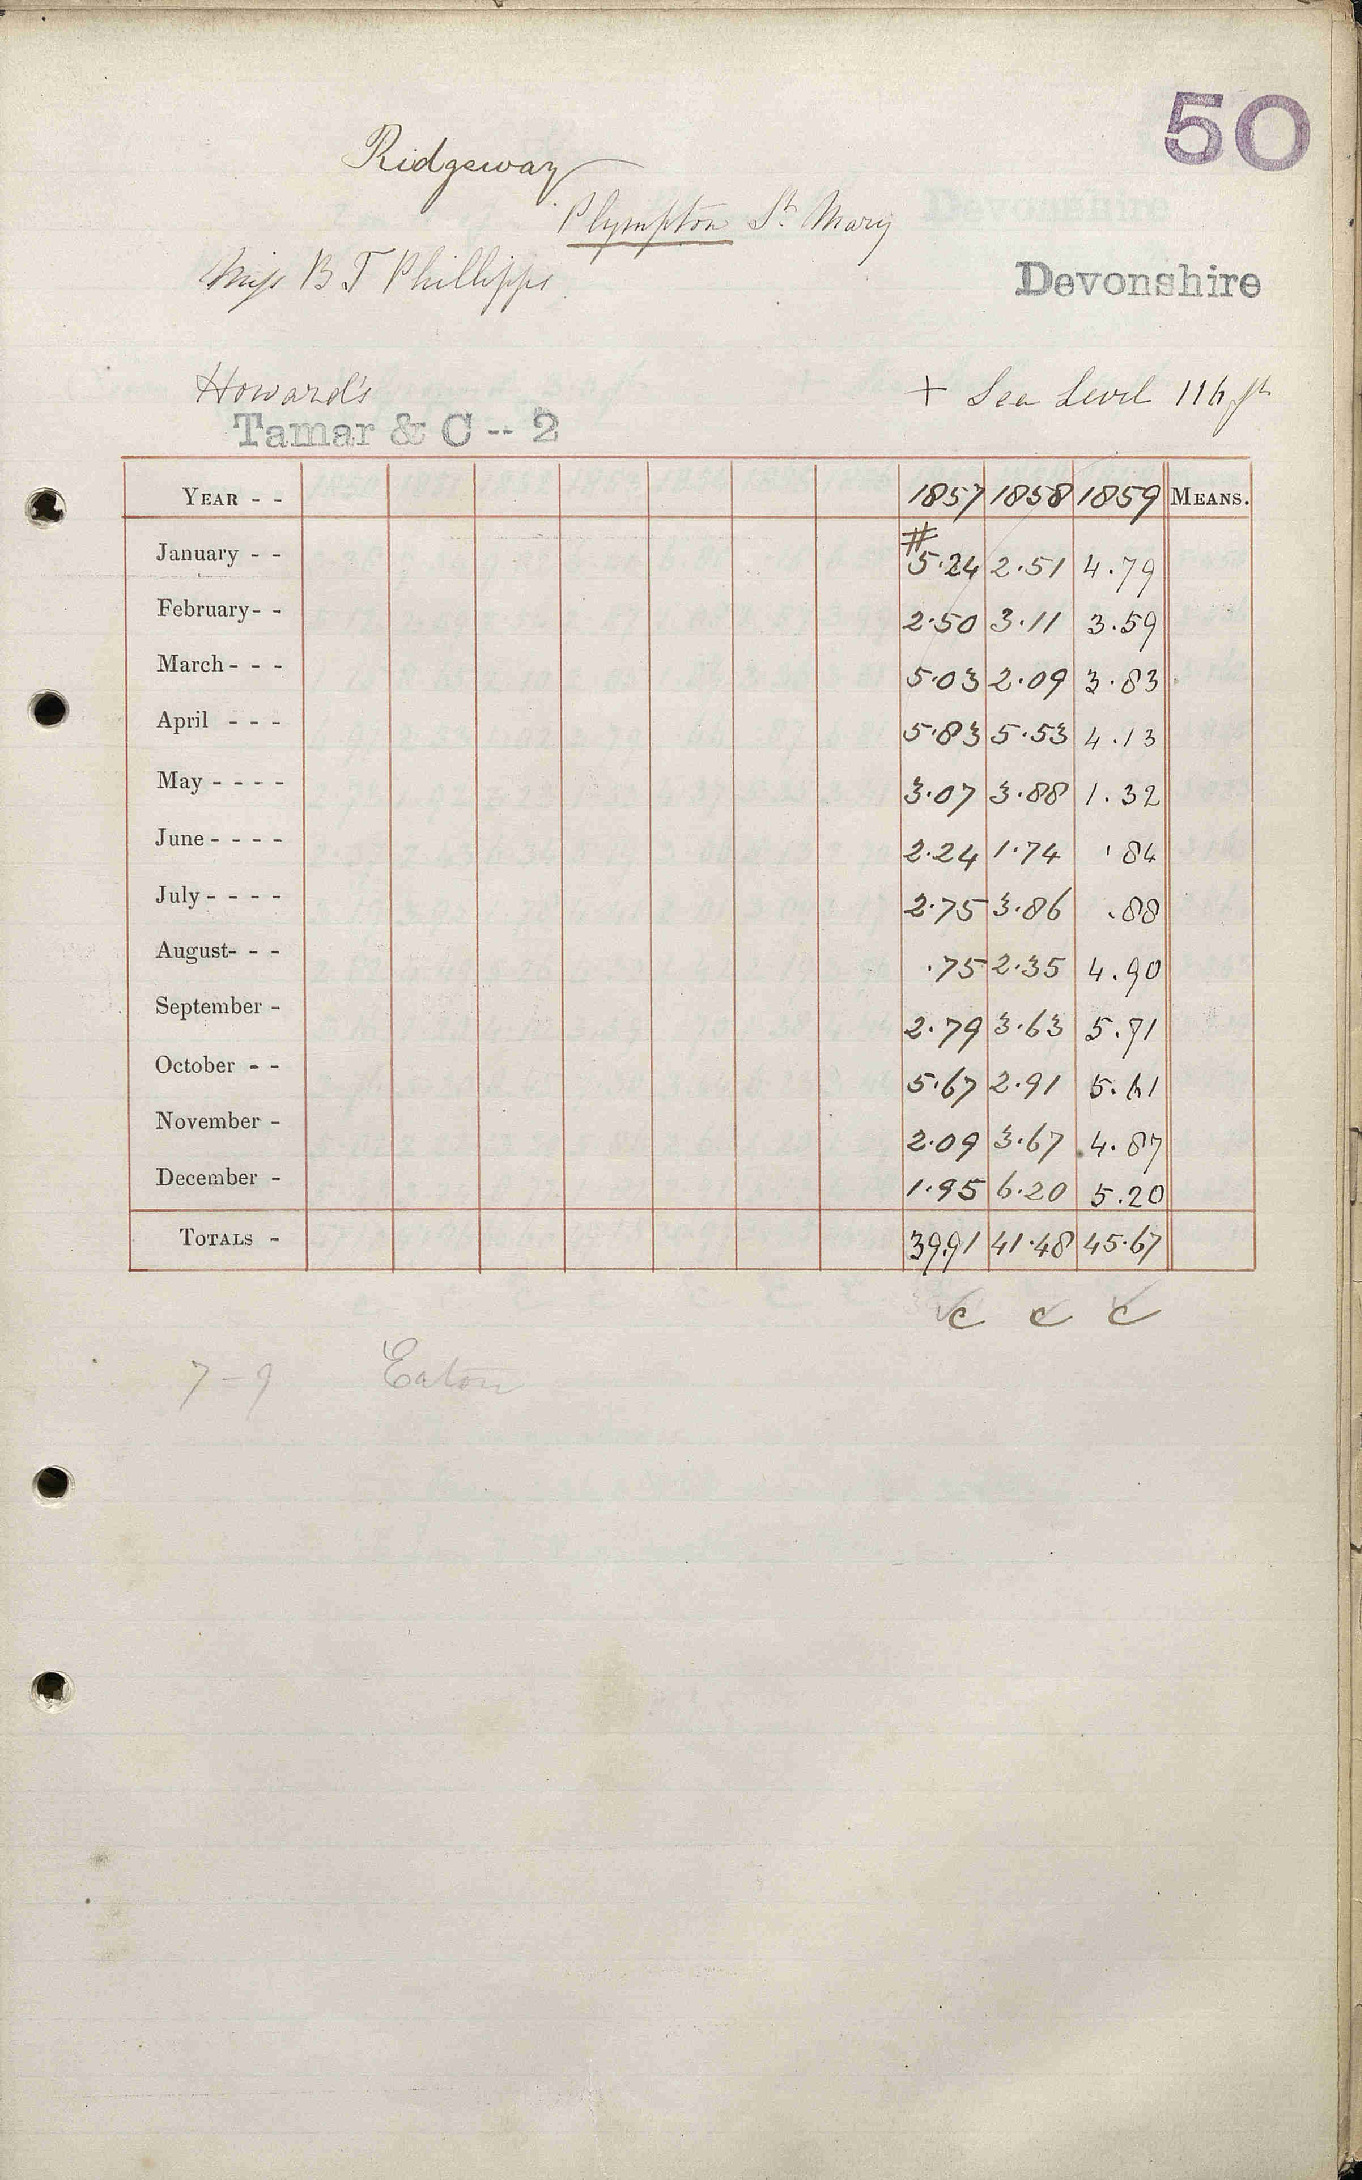 50
Ridgeway
Plympton St Mary
Miss B T Phillipps
Devonshire
Howard's
+ Sea Level 116 ft
Tamar & C -- 2
YEAR - - 1857 1858 1859 MEANS.
January - - #5.24 2.51 4.79
February - - 2.50 3.11 3.59
March - - - 5.03 2.09 3.83
April - - - 5.83 5.53 4.13
May - - - - 3.07 3.88 1.32
June - - - - 2.24 1.74 .84
July - - - - 2.75 3.86 .88
August - - - .75 2.35 4.90
September - 2.79 3.63 5.71
October - - 5.67 2.91 5.61
November - 2.09 3.67 4.87
December - 1.95 6.20 5.20
TOTALS - 39.91 41.48 45.67
c c c
7-9 Eaton